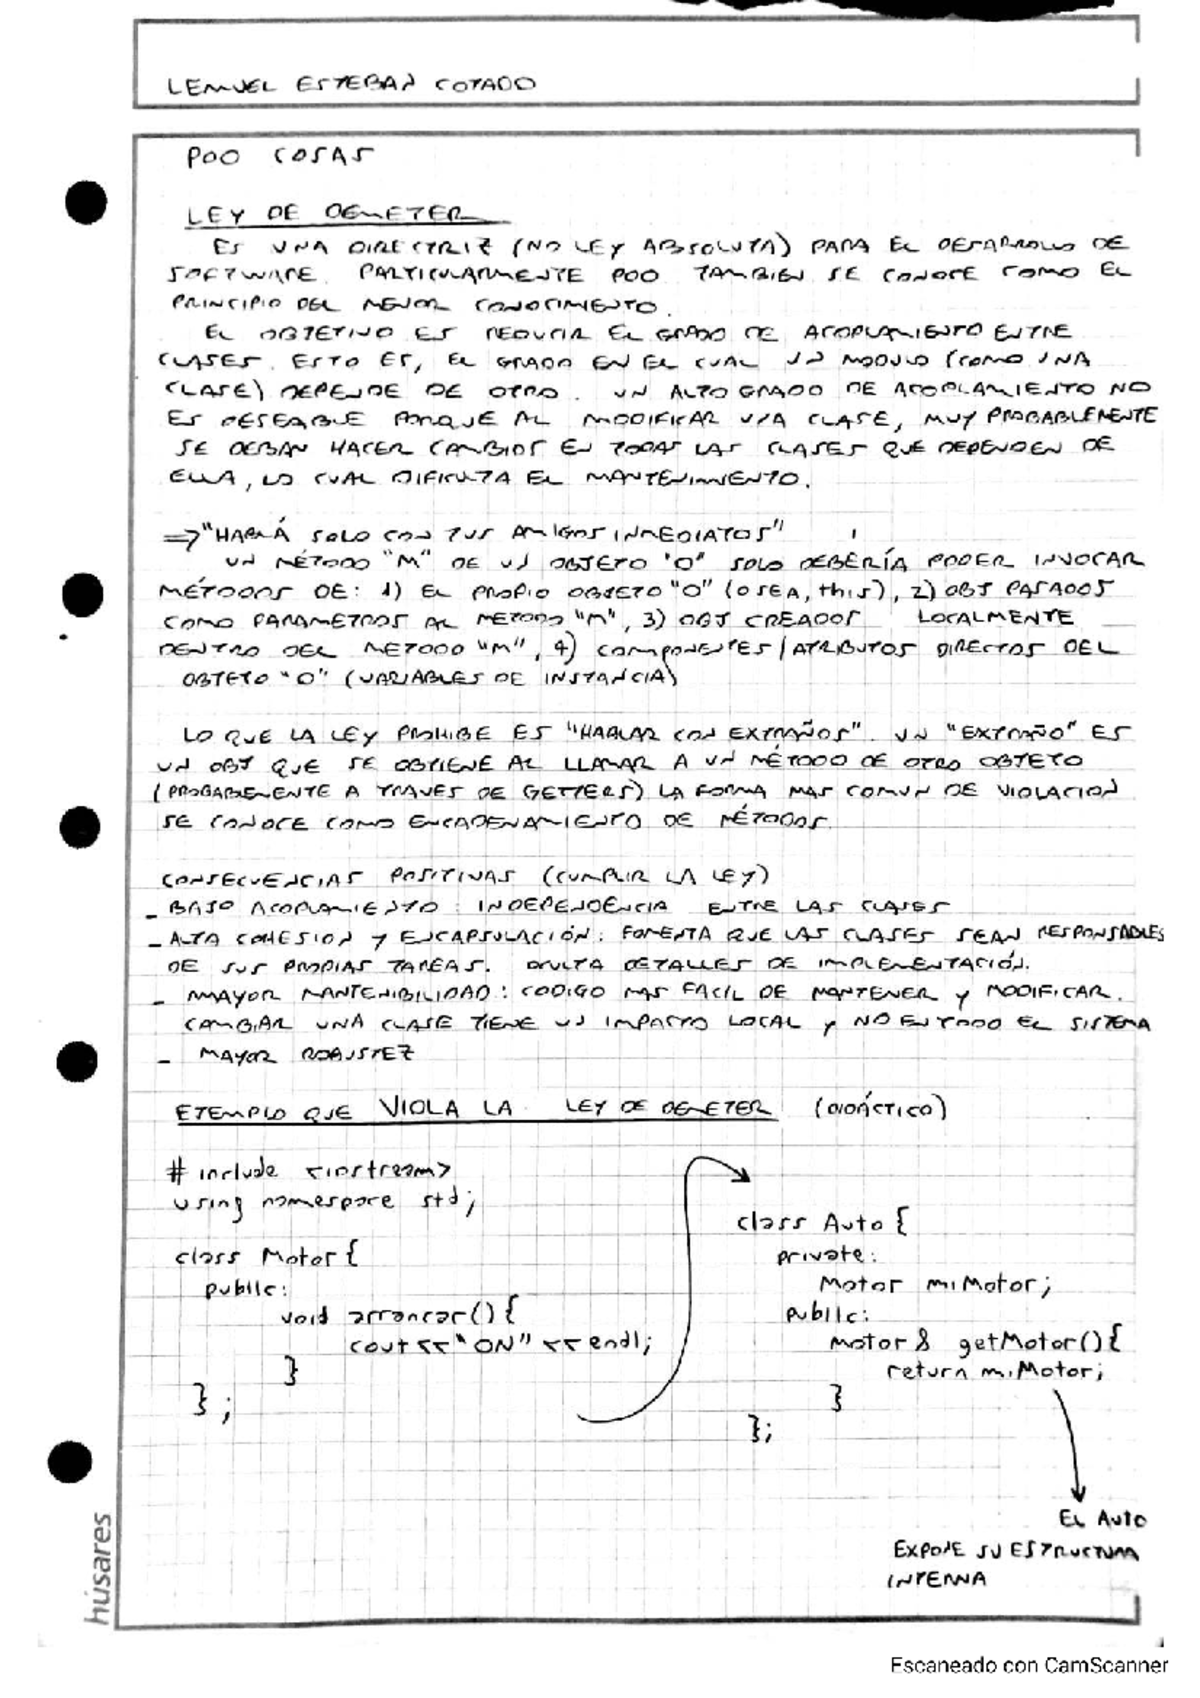 LEMUEL ESTEBAN COTADO
POO COSAS
LEY DE DEMETER
ES UNA DIRECTRIZ (NO LEY ABSOLUTA) PARA EL DESARROLLO DE
SOFTWARE. PARTICULARMENTE POO TAMBIEN SE CONOCE COMO EL
PRINCIPIO DEL MENOR CONOCIMIENTO.
EL OBJETIVO ES REDUCIR EL GRADO DE ACOPLAMIENTO ENTRE
CLASES. ESTO ES, EL GRADO EN EL CUAL UN MODULO (COMO UNA
CLASE) DEPENDE DE OTRO. UN ALTO GRADO DE ACOPLAMIENTO NO
ES DESEABLE PORQUE AL MODIFICAR UNA CLASE, MUY PROBABLEMENTE
SE DEBAN HACER CAMBIOS EN TODAS LAS CLASES QUE DEPENDEN DE
ELLA, LO CUAL DIFICULTA EL MANTENIMIENTO.
=> "HABLÁ SOLO CON TUS AMIGOS INMEDIATOS"
UN MÉTODO "M" DE UN OBJETO "O" SOLO DEBERÍA PODER INVOCAR
MÉTODOS DE: 1) EL PROPIO OBJETO "O" (O SEA, this), 2) OBJ PASADOS
COMO PARAMETROS AL METODO "M", 3) OBJ CREADOS LOCALMENTE
DENTRO DEL METODO "M", 4) COMPONENTES/ATRIBUTOS DIRECTOS DEL
OBJETO "O" (VARIABLES DE INSTANCIA)
LO QUE LA LEY PROHIBE ES "HABLAR CON EXTRAÑOS". UN "EXTRAÑO" ES
UN OBJ QUE SE OBTIENE AL LLAMAR A UN MÉTODO DE OTRO OBJETO
(PROBABLEMENTE A TRAVES DE GETTERS) LA FORMA MAS COMUN DE VIOLACION
SE CONOCE COMO ENCADENAMIENTO DE MÉTODOS.
CONSECUENCIAS POSITIVAS (CUMPLIR LA LEY)
- BAJO ACOPLAMIENTO: INDEPENDENCIA ENTRE LAS CLASES
- ALTA COHESION Y ENCAPSULACIÓN: FOMENTA QUE LAS CLASES SEAN RESPONSABLES
DE SUS PROPIAS TAREAS. OCULTA DETALLES DE IMPLEMENTACIÓN.
- MAYOR MANTENIBILIDAD: CODIGO MAS FACIL DE MANTENER Y MODIFICAR.
CAMBIAR UNA CLASE TIENE UN IMPACTO LOCAL Y NO EN TODO EL SISTEMA
- MAYOR ROBUSTEZ
EJEMPLO QUE VIOLA LA LEY DE DEMETER (DIDÁCTICO)
#include <iostream>
using namespace std;
class Motor{
public:
void arrancar(){
cout<<"ON"<<endl;
}
};
class Auto{
private:
Motor miMotor;
public:
motor& getMotor(){
return miMotor;
}
};
EL AUTO
EXPONE SU ESTRUCTURA
INTERNA
húsares
Escaneado con CamScanner